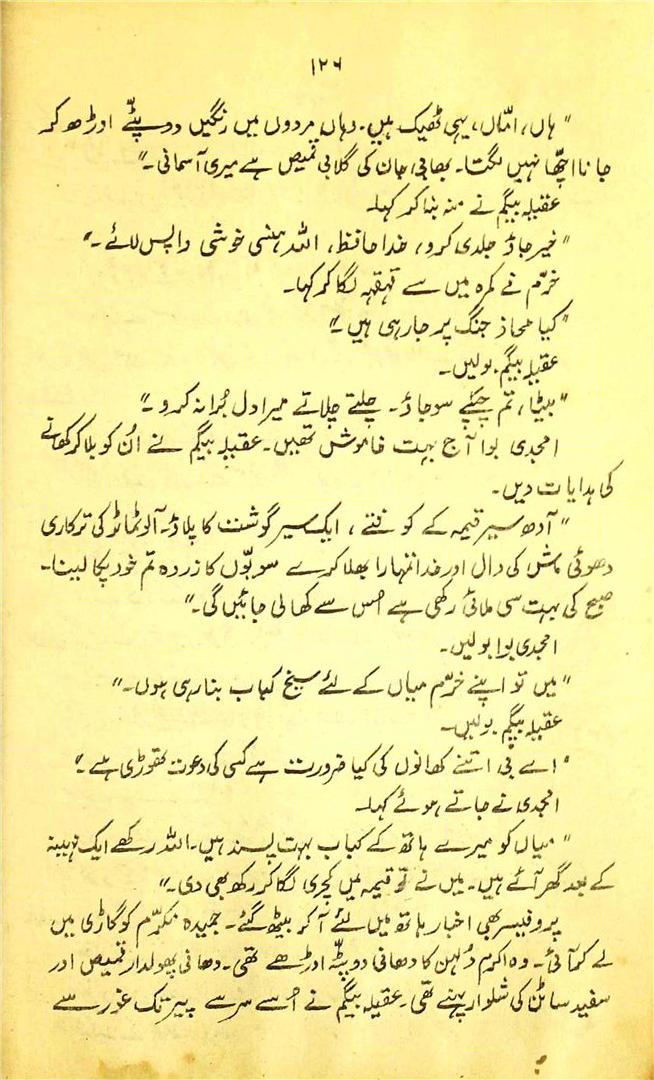 ۱۲۶
"ہاں، امّاں، یہی ٹھیک ہیں۔ وہاں مردوں میں رنگیں دوپٹّے اوڑھ کر
جانا اچھّا نہیں لگتا۔ بھابی جان کی گلابی قمیص ہے میری آسمانی۔"
عقیلہ بیگم نے منہ بنا کر کہا۔
"خیر جاؤ جلدی کرو، خدا حافظ، اللہ ہنسی خوشی واپس لائے۔"
خرّم نے کمرہ میں سے قہقہہ لگا کر کہا۔
"کیا محاذ جنگ پر جا رہی ہیں۔"
عقیلہ بیگم بولیں۔
"بیٹا، تم چپکے سو جاؤ۔ چلتے چلاتے میرا دل بُرا نہ کرو۔"
امجدی بوا آج بہت خاموش تھیں۔ عقیلہ بیگم نے اُن کو بلا کر کھانے
کی ہدایات دیں۔
"آدھ سیر قیمہ کے کوفتے، ایک سیر گوشت کا پلاؤ۔ آلو ٹماٹر کی ترکاری
دھوئی ماش کی دال اور خدا تمہارا بھلا کرے سویّوں کا زردہ تم خود پکا لینا۔
صبح کی بہت سی ملائی رکھی ہے اُس سے کھا لی جائیں گی۔"
امجدی بوا بولیں۔
"میں تو اپنے خرّم میاں کے لئے سیخ کباب بنا رہی ہوں۔"
عقیلہ بیگم بولیں۔
"اے بی اتنے کھانوں کی کیا ضرورت ہے کسی کی دعوت تھوڑی ہے۔"
امجدی نے جاتے ہوئے کہا۔
"میاں کو میرے ہاتھ کے کباب بہت پسند ہیں۔ اللہ رکھے ایک مہینہ
کے بعد گھر آئے ہیں۔ میں نے تو قیمہ میں کچری لگا کر رکھ بھی دی۔"
پروفیسر بھی اخبار ہاتھ میں لئے آ کر بیٹھ گئے۔ حمیدہ مکرّم کو گاڑی میں
لے کر آئی۔ وہ اکرم دُلہن کا دھانی دوپٹّہ اوڑھے تھی۔ دھانی پھولدار قمیص اور
سفید ساٹن کی شلوار پہنے تھی۔ عقیلہ بیگم نے اُسے سر سے پیر تک غور سے